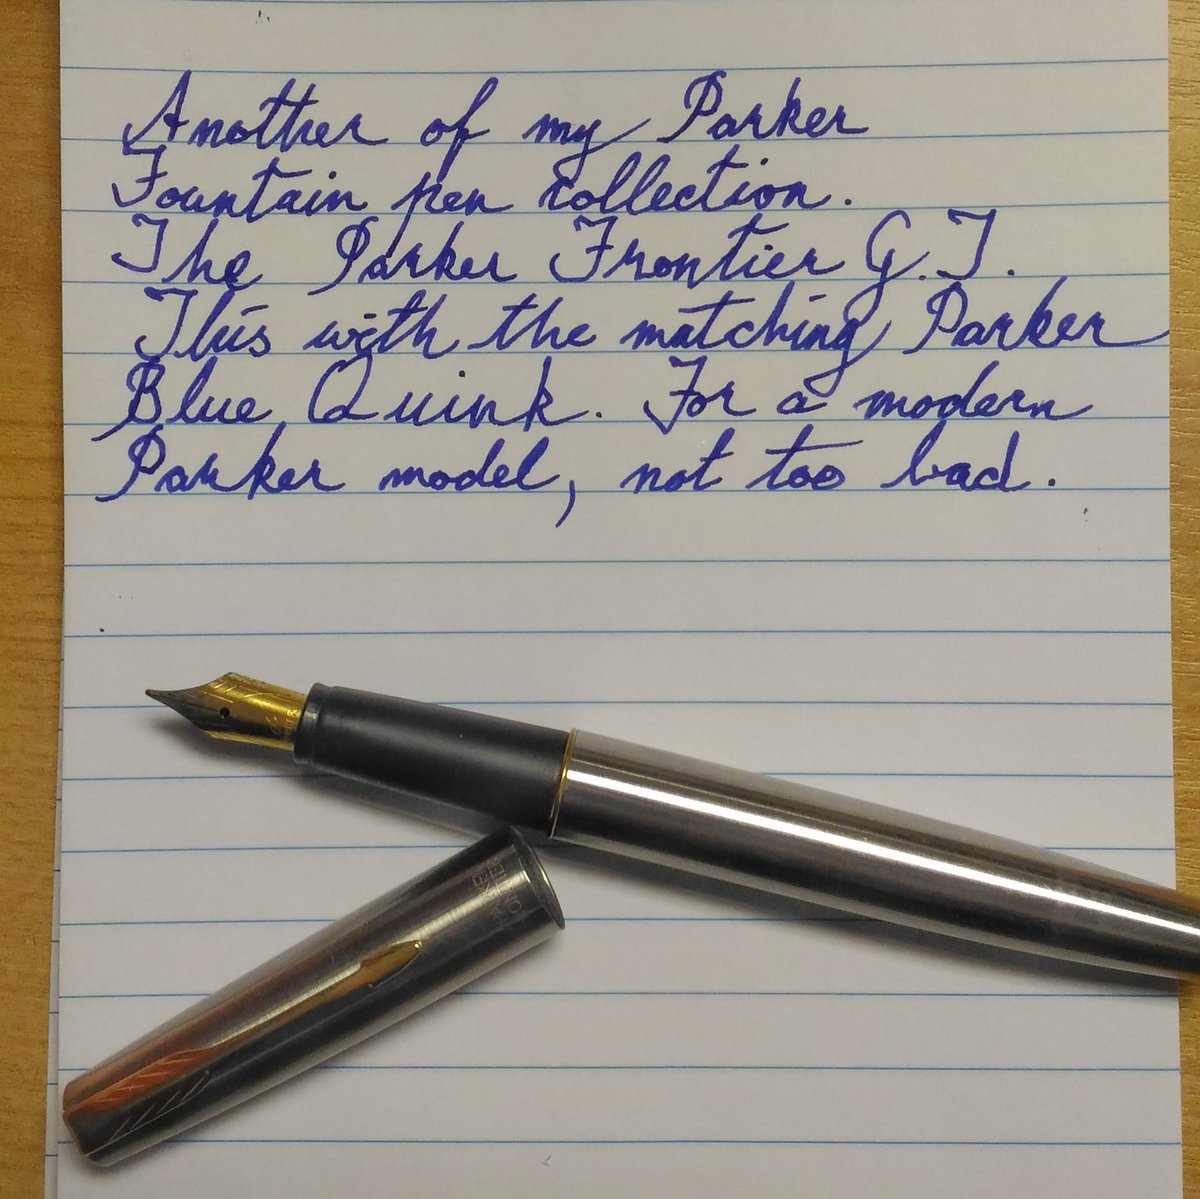 Another of my Parker
Fountain pen collection.
The Parker Frontier G.T.
This with the matching Parker
Blue Quink. For a modern
Parker model, not too bad.